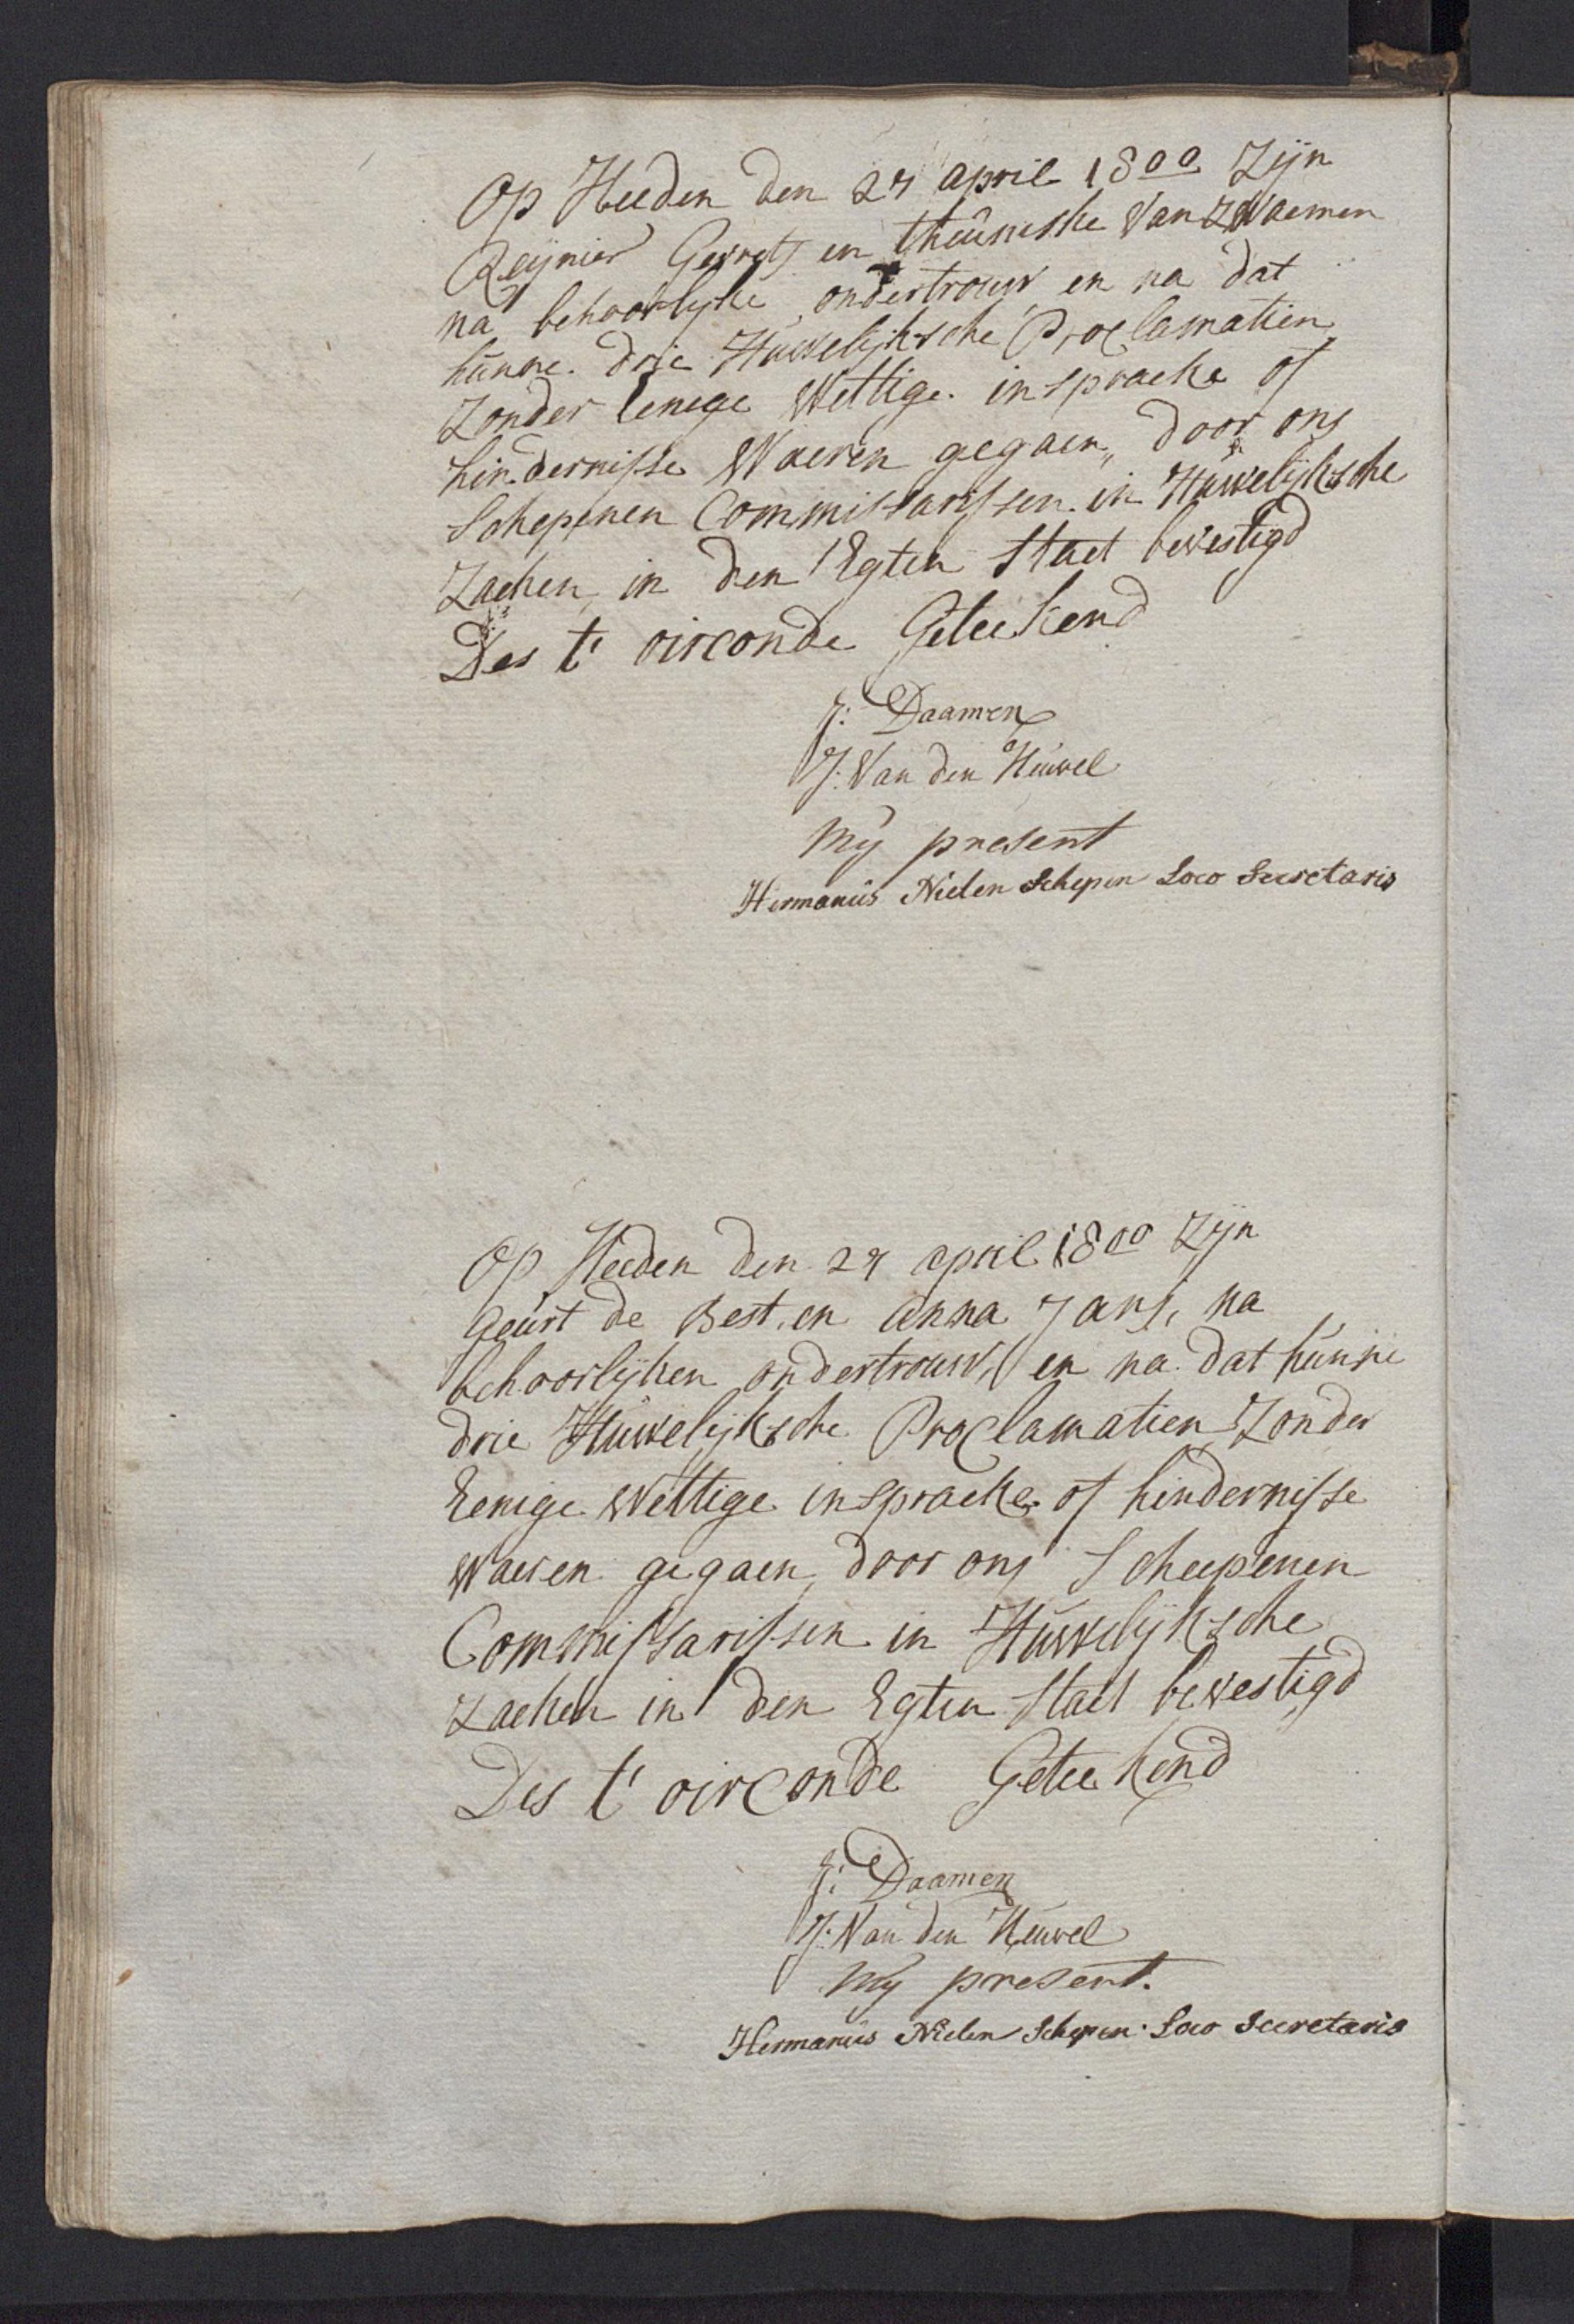 Op Heeden den 27 april 1800 Zijn
Reijnier Gerrets en theuniske Van Zwaemen
na behoorlijke ondertrouw en na dat
hunne drie Huwelijksche Proclamatien
Zonder Eenege Wettige inspraeke of
hindernisse Waeren gegaen, door ons
Schepenen Commissarissen in Huwelijksche
Zaeken, in den Egten Staet bevestigd
Des t' oirconde Geteekend
J: Daamen
J: Van den Heuvel
Mij present
Hermanus Nielen Schepen Loco Secretaris
Op Heeden den 27 april 1800 Zijn
Geurt de Best, en anna Jans, na
behoorlijken ondertrouw, en na dat hunne
drie Huwelijksche Proclamatien Zonder
Eenige Wettige inspraeke of hindernisse
Waeren gegaen, door ons Scheepenen
Commissarissen in Huwelijksche
Zaeken in den Egten Staet bevestigd
Des t' oirconde Geteekend
J: Daamen
J: Van den Heuvel
Mij present.
Hermanus Nielen Schepen Loco Secretaris